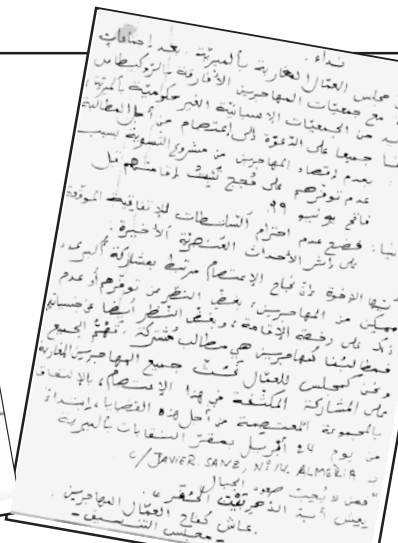 نداء.
مجلس العمال المغاربة بألمرية، بعد اجتماعات
مع جمعيات المهاجرين الأفارقة بالروكيطاس
من الجمعيات الإسبانية الغير حكومية بألمرية،
جميعا على الدعوة إلى اعتصام من أجل المطالبة
بعدم إقصاء المهاجرين من مشروع التسوية بسبب
عدم توفرهم على حجج تثبت إقامتهم قبل
فاتح يونيو 99.
فضح عدم احترام السلطات للإتفاقية الموقعة
على إثر الأحداث العنصرية الأخيرة.
أيها الإخوة إن نجاح الإعتصام مرتبط بمشاركة أكبر عدد
ممكن من المهاجرين، بغض النظر عن توفرهم أو عدم
على رخصة الإقامة، وبغض النظر أيضا عن جنسياتهم
فمطالبنا كمهاجرين هي مطالب مشتركة تهم الجميع
ونحن كمجلس للعمال نحث جميع المهاجرين المغاربة
على المشاركة المكثفة في هذا الإعتصام، بالإلتحاق
بالمجموعة المعتصمة من أجل هذه القضايا، إبتداء
من يوم 24 أبريل بمقر النقابات بألمرية
بـ C/ JAVIER SANZ, Nº IV. ALMERIA
"فمن لا يحب صعود الجبال
يعش أبد الدهر بين الحفر".
عاش كفاح العمال المهاجرين.
- مجلس التنسيق -